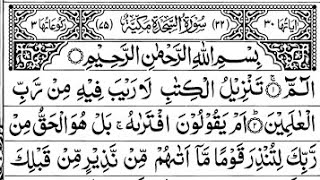 اٰيَاتُهَا ٣٠ (٣٢) سُوْرَةُ السَّجْدَةِ مَكِّيَّةٌ (٧٥) رُكُوْعَاتُهَا ٣
بِسْمِ اللّٰهِ الرَّحْمٰنِ الرَّحِيْمِ
الٓمّٓ ۝١ تَنْزِيْلُ الْكِتٰبِ لَا رَيْبَ فِيْهِ مِنْ رَّبِّ
الْعٰلَمِيْنَ ۝٢ اَمْ يَقُوْلُوْنَ افْتَرٰىهُ ۚ بَلْ هُوَ الْحَقُّ مِنْ
رَّبِّكَ لِتُنْذِرَ قَوْمًا مَّاۤ اَتٰىهُمْ مِّنْ نَّذِيْرٍ مِّنْ قَبْلِكَ